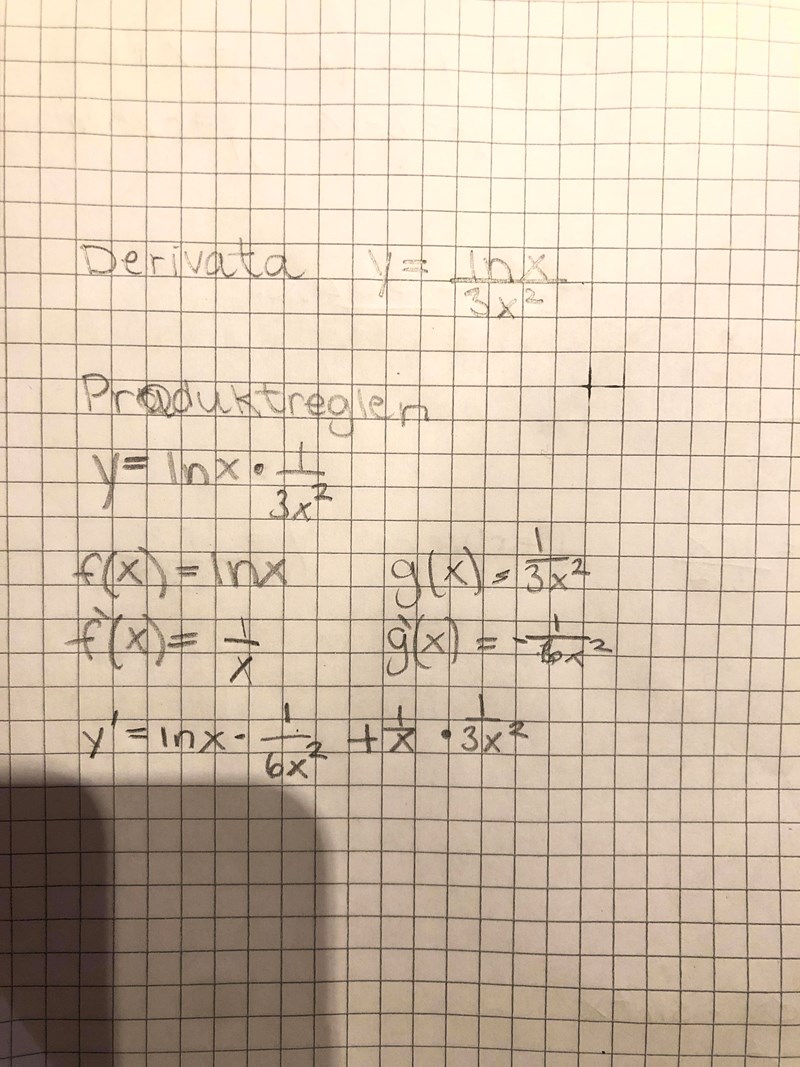 Derivata y = lnx/3x²
Produktreglen
y = lnx · 1/3x²
f(x) = lnx g(x) = 1/3x²
f'(x) = 1/x g'(x) = -1/6x²
y' = lnx · 1/6x² + 1/x · 1/3x²